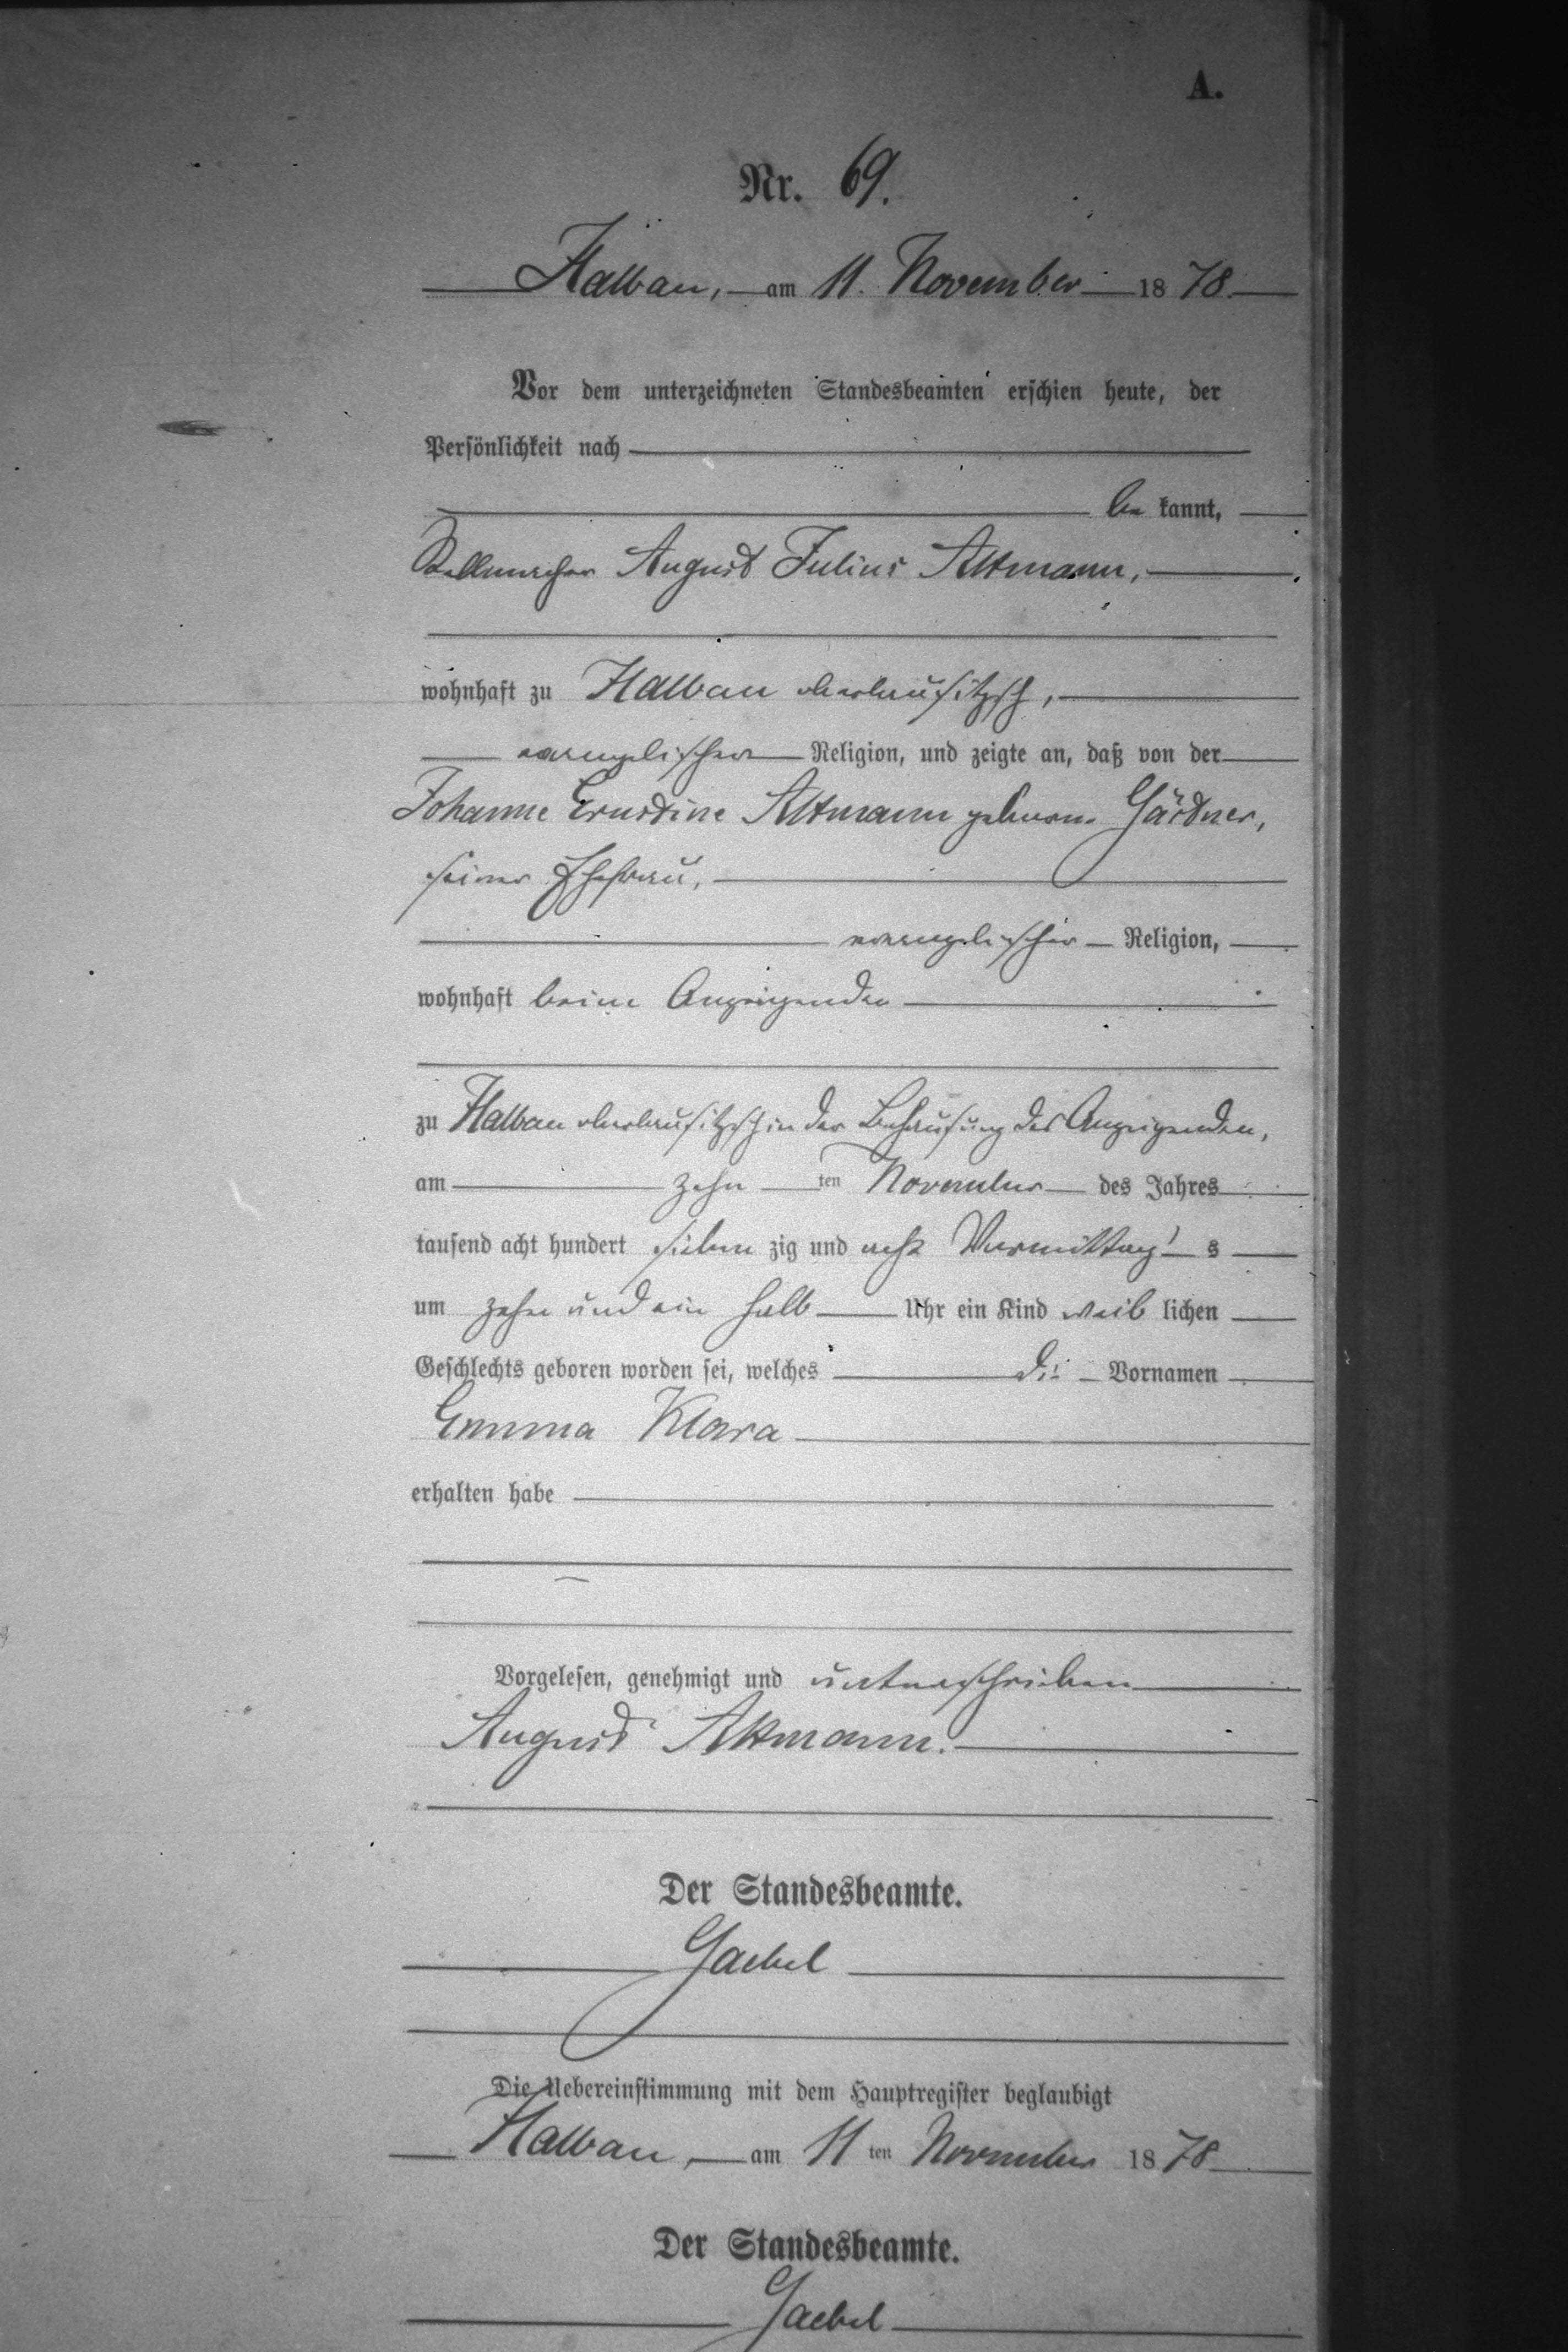 A.
Nr. 69.
Halbau, am 11. November 1878.
Vor dem unterzeichneten Standesbeamten erschien heute, der
Persönlichkeit nach
be kannt,
Stellmacher August Julius Altmann,
wohnhaft zu Halbau oberlausitzisch,
evangelischer Religion, und zeigte an, daß von der
Johanne Ernestine Altmann geborne Gärdner,
seiner Ehefrau,
evangelischer Religion,
wohnhaft beim Anzeigenden
zu Halbau oberlausitzisch in der Behausung des Anzeigenden,
am zehn ten November des Jahres
tausend acht hundert sieben zig und acht Vormittag s
um zehn und ein halb Uhr ein Kind weib lichen
Geschlechts geboren worden sei, welches die Vornamen
Emma Klara
erhalten habe
Vorgelesen, genehmigt und unterschrieben
August Altmann.
Der Standesbeamte.
Gaebel
Die Uebereinstimmung mit dem Hauptregister beglaubigt
Halbau, am 11 ten November 1878
Der Standesbeamte.
Gaebel